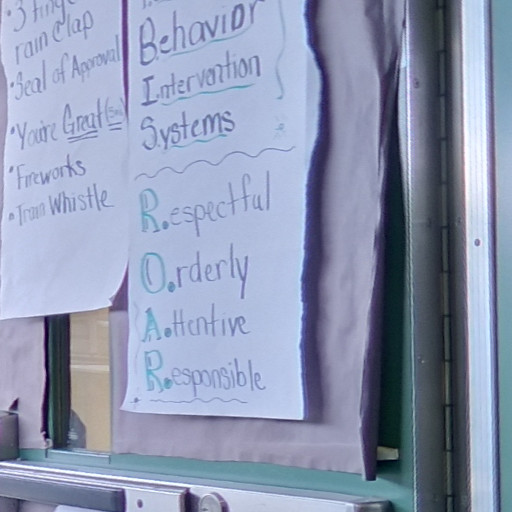 • 3 finge
rain Clap
• Seal of Approval
• You're Great (5x)
• Fireworks
• Train Whistle
Behavior
Intervention
Systems
R.espectful
O.rderly
A.ttentive
R.esponsible